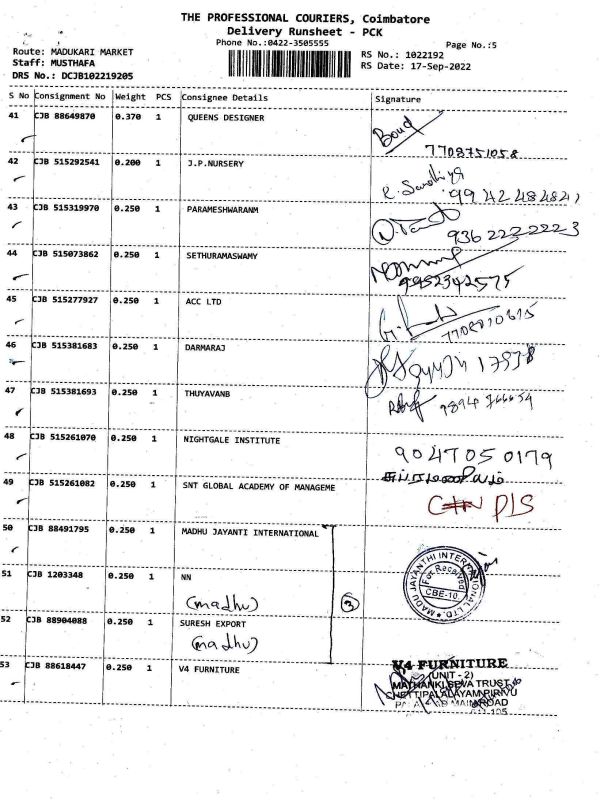 THE PROFESSIONAL COURIERS, Coimbatore
Delivery Runsheet - PCK
Phone No.:0422-3505555
Page No.:5
Route: MADUKARI MARKET
RS No.: 1022192
Staff: MUSTHAFA
RS Date: 17-Sep-2022
DRS No.: DCJB102219205
S No Consignment No Weight PCS Consignee Details Signature
41 CJB 88649870 0.370 1 QUEENS DESIGNER
7708751058
42 CJB 515292541 0.200 1 J.P.NURSERY
9942484841
43 CJB 515319970 0.250 1 PARAMESHWARANM
936 222 2223
44 CJB 515073862 0.250 1 SETHURAMASWAMY
9952342575
45 CJB 515277927 0.250 1 ACC LTD
46 CJB 515381683 0.250 1 DARMARAJ
47 CJB 515381693 0.250 1 THUYAVANB
48 CJB 515261070 0.250 1 NIGHTGALE INSTITUTE
9047050179
49 CJB 515261082 0.250 1 SNT GLOBAL ACADEMY OF MANAGEME
50 CJB 88491795 0.250 1 MADHU JAYANTI INTERNATIONAL
MADU JAYANTHI INTERNATIONAL LTD
For Received
CBE-10
51 CJB 1203348 0.250 1 NN
(madhu)
3
52 CJB 88904088 0.250 1 SURESH EXPORT
(madhu)
53 CJB 88618447 0.250 1 V4 FURNITURE
V4 FURNITURE
(UNIT - 2)
MATHANKI SEVA TRUST
CHETTIPALALAYAM PIRIVU